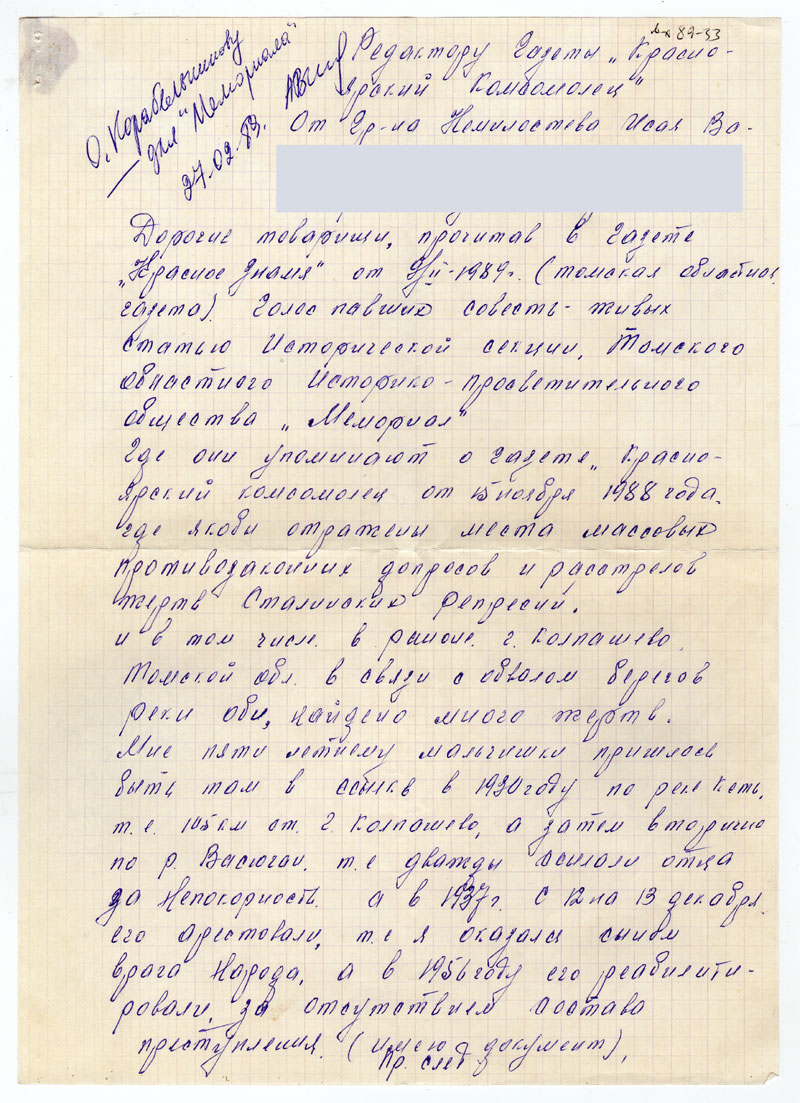 вх 89-33
О. Корабельникову
для "Мемориала"
27.02.89.
Редактору газеты „Красно-
ярский Комсомолец"
От гр-на Немилостева Исая Ва-
Дорогие товарищи, прочитав в газете
„Красное Знамя" от 9/II-1989г. (томская областная
газета). Голос павших совесть - живых
статью Исторической секции, Томского
областного Историко-просветительного
общества „Мемориал"
Где они упоминают о газете „Красно-
ярский комсомолец от 15 ноября 1988 года.
где якобы отражены места массовых
противозаконных допросов и расстрелов
жертв Сталинских репресий.
и в том числе. в районе. г. Колпашево.
Томской обл. в связи с обвалом берегов
реки оби, найдено много жертв.
Мне пяти летнему мальчишки пришлось
быть там в ссылке в 1930 году по реке Кеть,
т.е. 105 км от. г. Колпашево, а затем вторично
по р. Васюган. т.е дважды ссылали отца
за непокорность. а в 1937г. с 12 на 13 декабря.
его арестовали, т.е я оказался сыном
врага Народа, а в 1956 году его реабилити-
ровали, за отсутствием состава
преступления. (имею документ),
пр. след